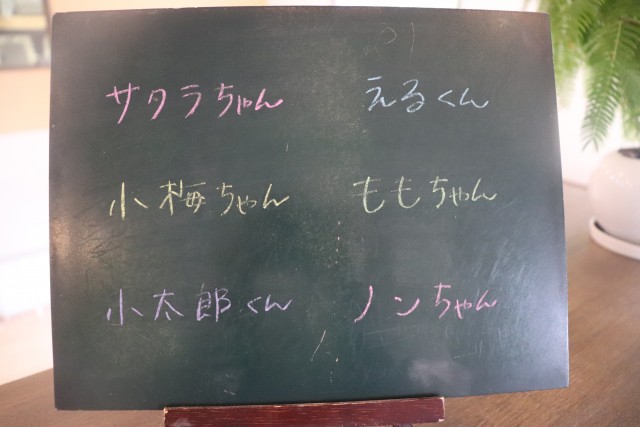 サクラちゃん えるくん
小梅ちゃん ももちゃん
小太郎くん ノンちゃん